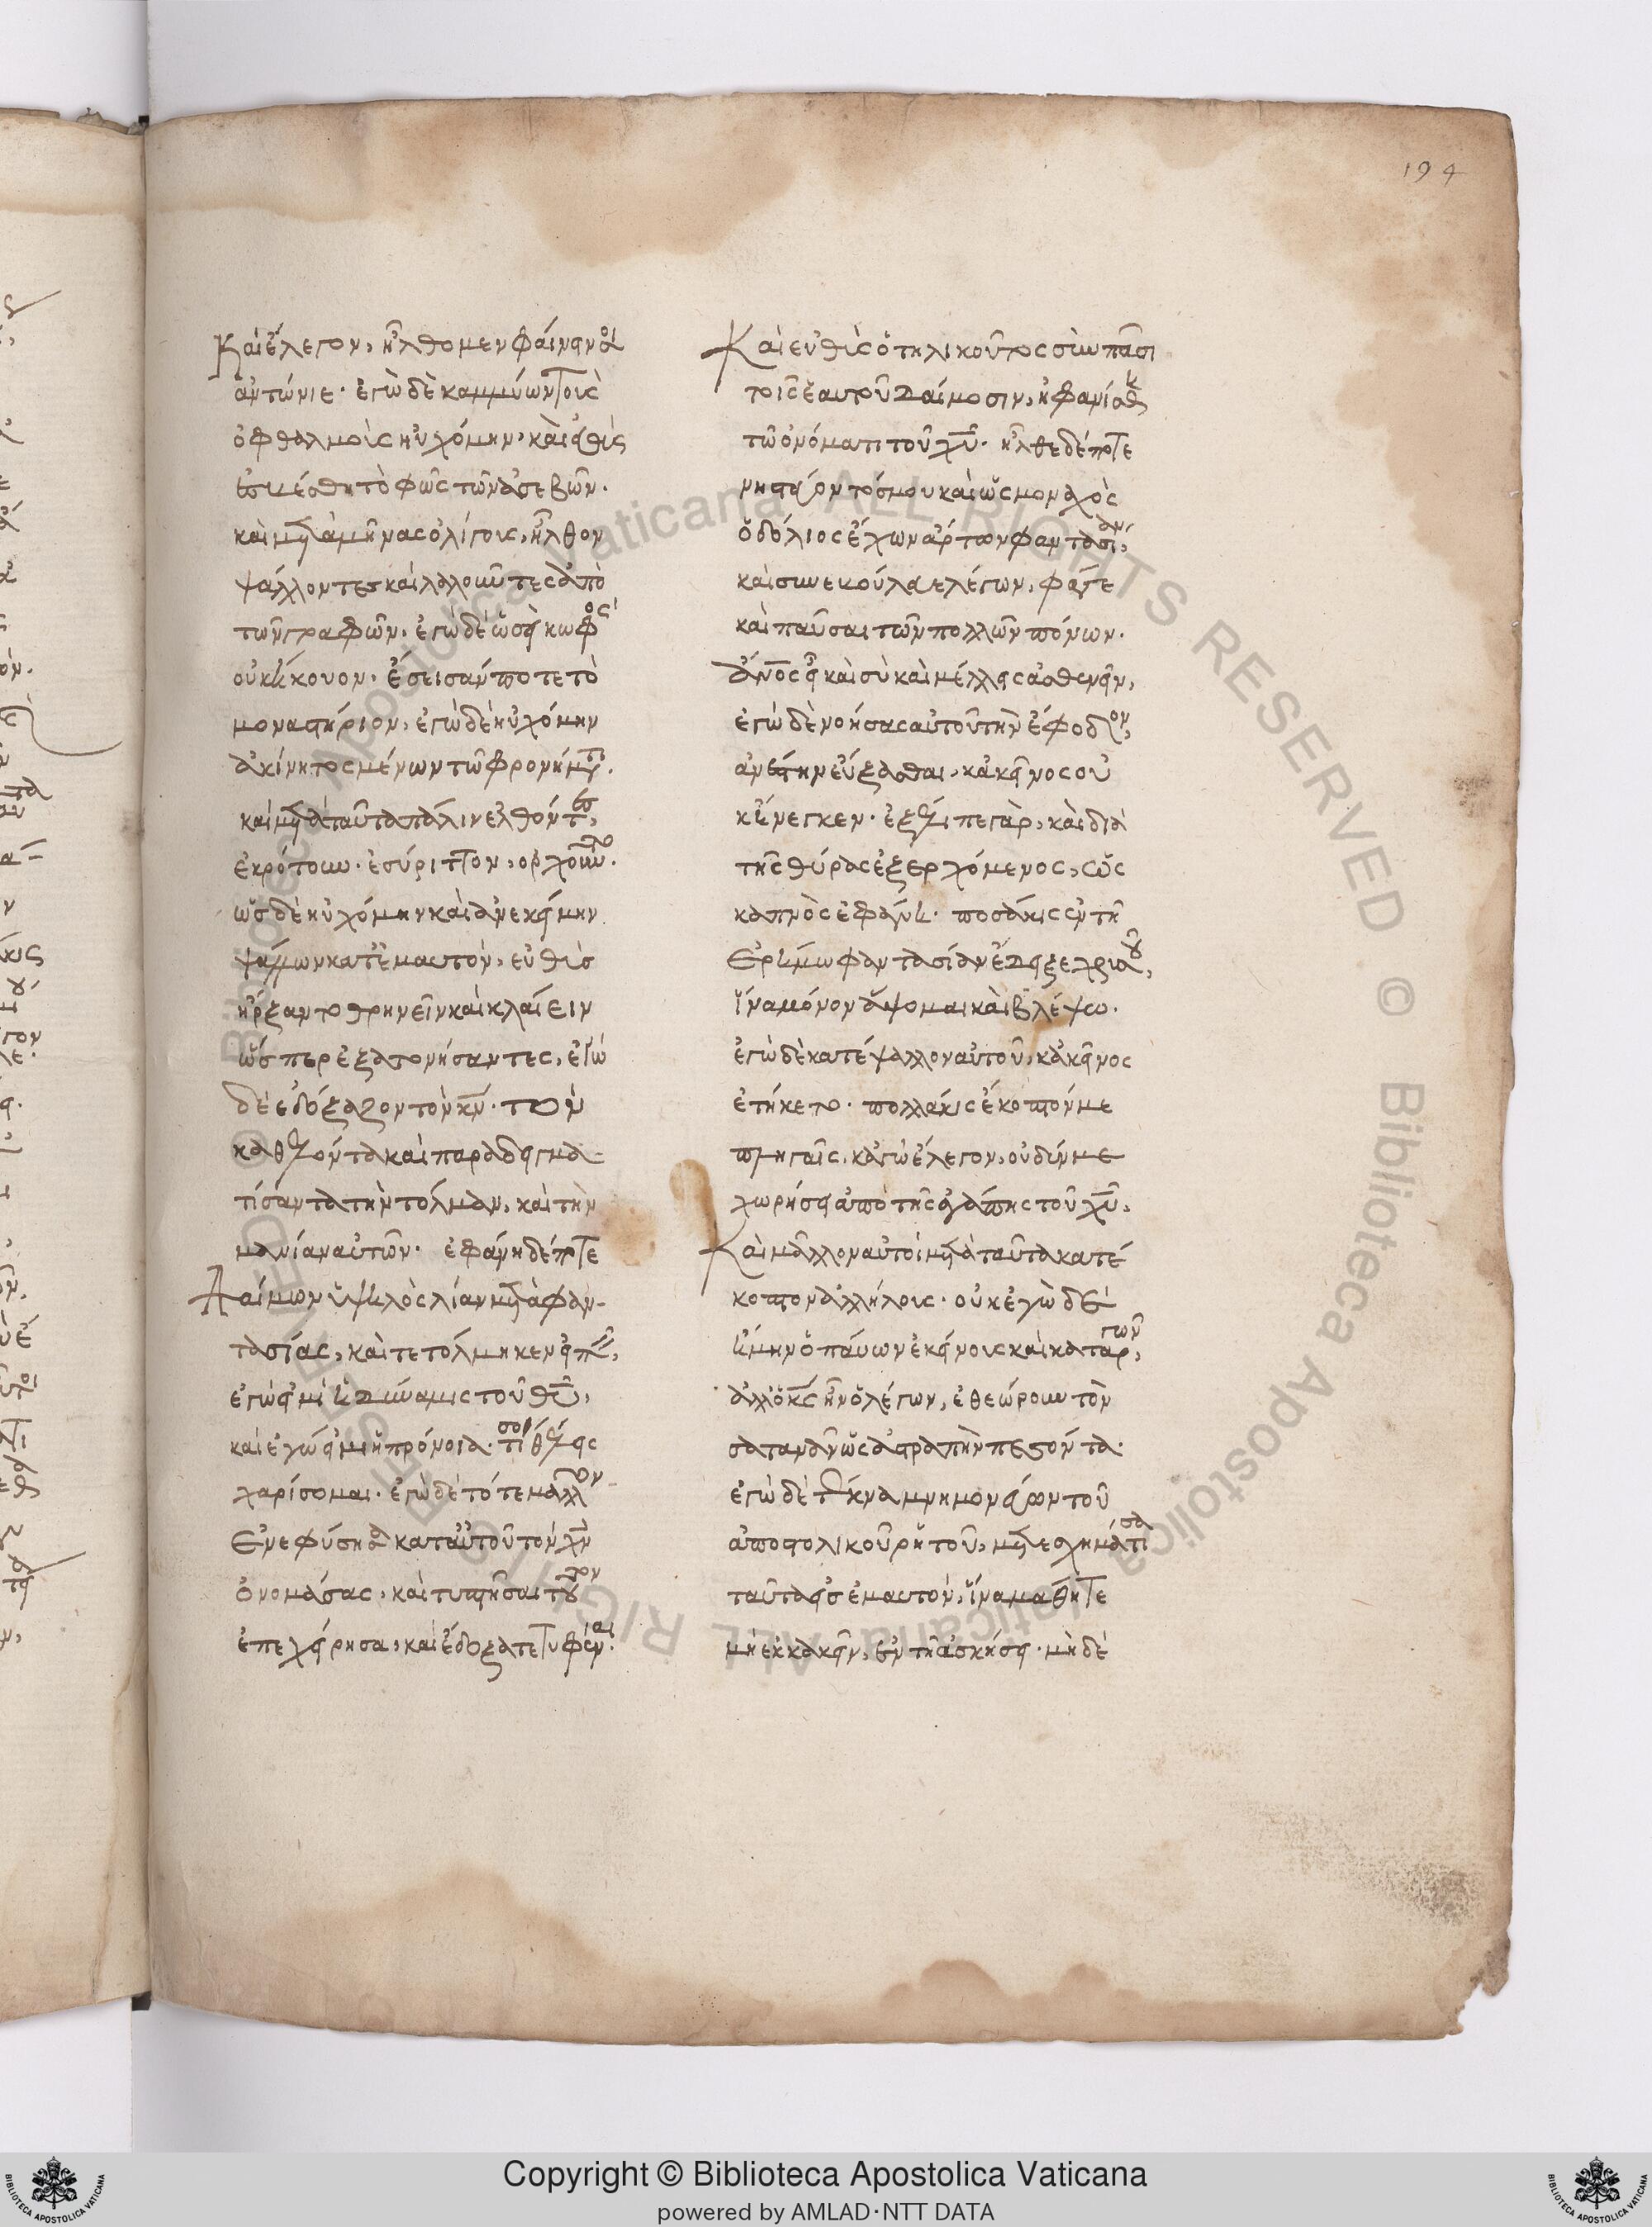 194
Καὶ ἔλεγον, ἤλθομεν φάιναι σοι
ἀντώνιε· ἐγὼ δὲ καμμύων τοὺς
ὀφθαλμοὺς ηὐχόμην· καὶ εὐθὺς
ἐσβέσθη τὸ φῶς τῶν ἀσεβῶν·
καὶ μετὰ μῆνας ὀλίγους, ἦλθον
ψάλλοντες καὶ λαλοῦντες ἀπὸ
τῶν γραφῶν· ἐγὼ δὲ ὡσεὶ κωφὸς
οὐκ ἤκουον· ἔσεισάν ποτε τὸ
μοναστήριον, ἐγὼ δὲ ηὐχόμην
ἀκίνητος μένων τῶ φρονήματι·
καὶ μετὰ ταῦτα πάλιν ἐλθόντες,
ἐκρότουν· ἐσύριττον, ὀρχοῦντο·
ὡς δὲ ηὐχόμην καὶ ἀνεκείμην
ψάλλων κατ' ἐμαυτὸν, εὐθὺς
ἤρξαντο θρηνεῖν καὶ κλαίειν
ὥσπερ ἐξατονήσαντες, ἐγὼ
δὲ ἐδόξαζον τὸν κν· τὸν
καθελόντα καὶ παραδειγμα-
τίσαντα τὴν τόλμαν, καὶ τὴν
μανίαν αὐτῶν· ἐφάνη δέ ποτε
Δαίμων ὑψηλὸς λίαν μετὰ φαν-
τασίας, καὶ τετόλμηκεν εἰπεῖν,
ἐγώ εἰμι ἡ δύναμις τοῦ θυ,
καὶ ἐγώ εἰμι ἡ πρόνοια· τί σοι θέλεις
χαρίσομαι· ἐγὼ δὲ τότε μᾶλλον
ἐνεφύσησα κατ' αὐτοῦ τὸν χν
ὀνομάσας, καὶ τυπτῆσαι τοῦτον
ἐπεχείρησα, καὶ ἔδοξα τετυφέναι·
Καὶ εὐθὺς ὁ τηλικοῦτος σὺν πᾶσι
τοῖς ἑαυτοῦ δαίμοσιν, ἠφανίσθη
τῶ ὀνόματι τοῦ χυ· ἦλθε δέ ποτε
νηστεύοντός μου καὶ ὡς μοναχὸς
ὁ δόλιος ἔχων ἄρτων φαντασίαν,
καὶ συνεβούλευε λέγων, φάγε
καὶ παῦσαι τῶν πολλῶν πόνων·
ἄνος εἶ καὶ σὺ καὶ μέλλεις ἀσθενεῖν,
ἐγὼ δὲ νοήσας αὐτοῦ τὴν ἔφοδον,
ἀνέστην εὔξασθαι, κἀκεῖνος οὐ
κ ἤνεγκεν· ἐξέλιπε γὰρ, καὶ διὰ
τῆς θύρας ἐξερχόμενος, ὡς
καπνὸς ἐφάνη· ποσάκις ἐν τῆ
ἐρήμω φαντασίαν ἔδειξε χρυσοῦ,
ἵνα μόνον ἅψομαι καὶ βλέψω·
ἐγὼ δὲ κατέψαλλον αὐτοῦ, κἀκεῖνος
ἐτήκετο· πολλάκις ἔκοπτόν με
πληγαῖς, κἀγὼ ἔλεγον, οὐδέν με
χωρήσει ἀπὸ τῆς ἀγάπης τοῦ χυ,
Καὶ μᾶλλον αὐτοὶ μετὰ ταῦτα κατέ
κοπτον ἀλλήλους· οὐκ ἐγὼ δὲ
ἤμην ὁ παύων ἐκείνους καὶ καταργῶν,
ἀλλ' ὁ κς ἦν ὁ λέγων, ἐθεώρουν τὸν
σατανᾶν ὡς ἀστραπὴν πεσόντα·
ἐγὼ δὲ τέκνα μνημονεύων τοῦ
ἀποστολικοῦ ῥητοῦ, μετεσχημάτισα
ταῦτα εἰς ἐμαυτὸν, ἵνα μάθητε
μὴ ἐκκακεῖν, ἐν τῆ ἀσκήσει· μὴ δὲ
Copyright © Biblioteca Apostolica Vaticana
powered by AMLAD·NTT DATA